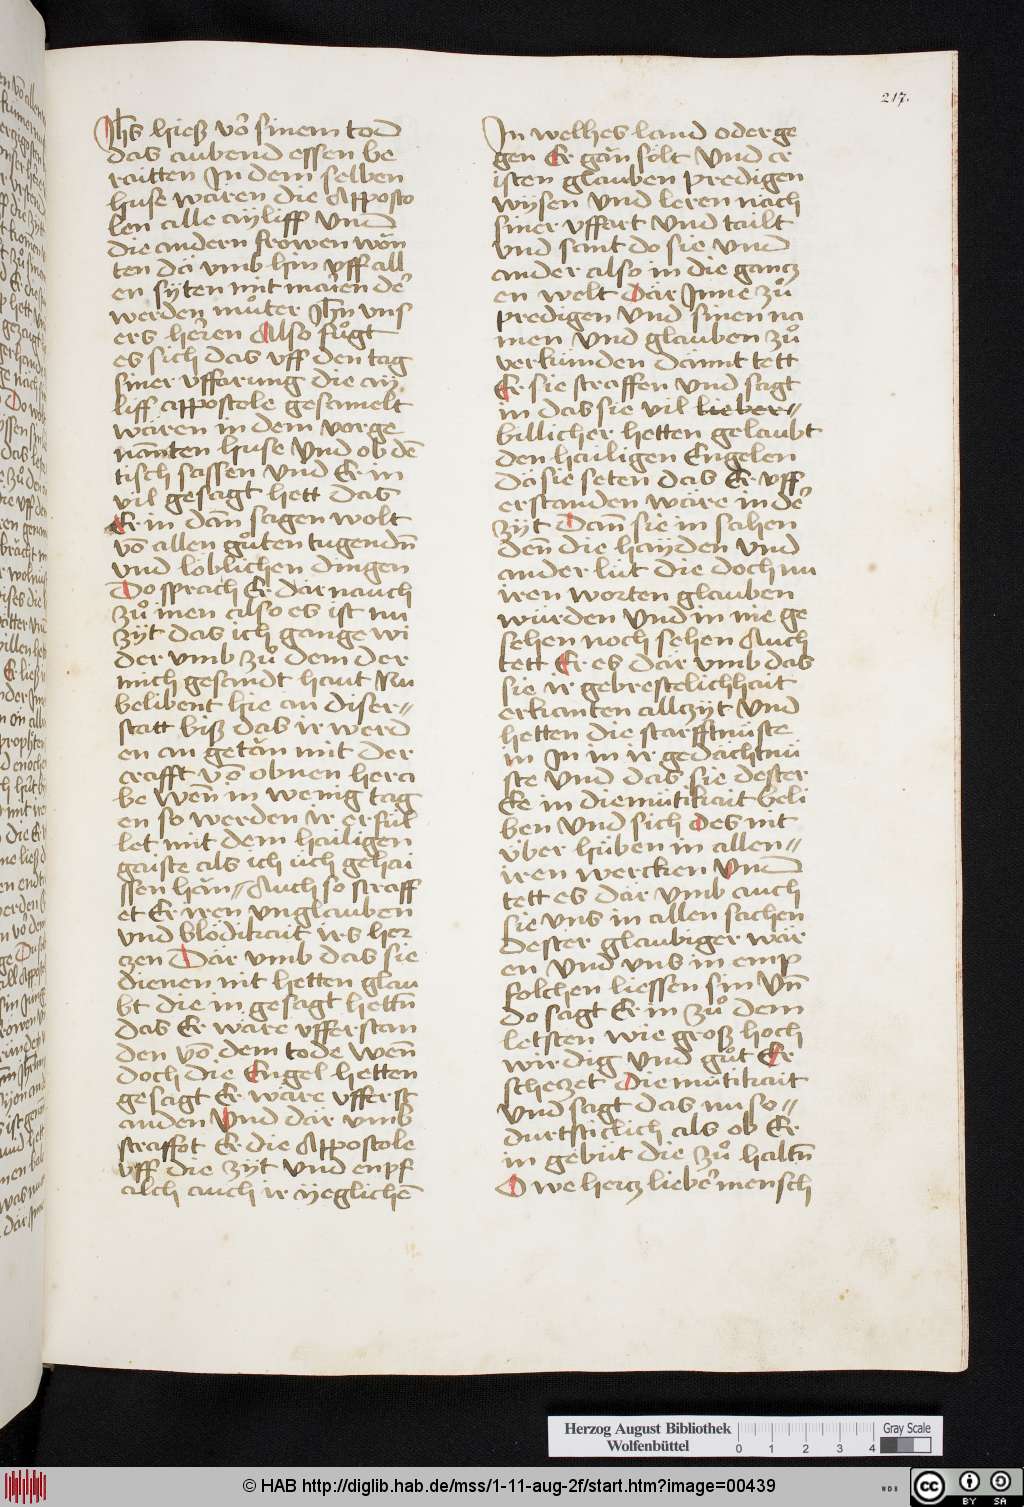 217.
Jhs hieß vō sinem tod
das aubend essen be
raitten Jn dem selben
huse waren die Apposto
len alle aÿliff vnd
die andern frowen won
ten dä vmb hin vff all
en sÿten mit marien d'
werden můter Jhū vns
ers heren Also fůgt
es sich das vff den tag
siner vffarung die aÿ
liff appostole gesamelt
wären in dem vorge
nannten huse Vnd ob dē
tisch sassen vnd Er in
vil gesagt hett das
Er in dan sagen wolt
vō allen gůten tugendn̄
vnd löblichen dingen
Do sprach Er dar nauch
zů inen also es ist nu
zÿt das ich gange wi
der vmb zů dem der
mich gesandt haut Nu
belibent hie an diser〃
statt biß das ir werd
en an getän mit der
crafft vō obnen hera
be Wen̄ in wenig tag
en so werden ir erfül
let mit dem hailigen
gaiste als ich üch gehai
ssen hän〃 Auch so straff
et Er iren vnglauben
vnd blödikait irs her
czen Där vmb das sie
dienen nit hetten glau
bt die in gesagt hettn̄
das Er wäre vfferstan
den vō dem tode wen̄
doch die Engel hetten
gesagt Er wäre vfferst
anden Vnd där vmb
straffot Er die Appostole
vff die zÿt Vnd enpf
alch auch ir ÿeglichē
Jn welhes land oder ge
gen Er gän sölt Vnd cr
isten glauben predigen
wÿsen Vnd leren näch
siner vffart Vnd tailt
vnd sant do sie Vnd
ander also in die gancz
en welt Där Jnne zů
predigen Vnd sinen na
men Vnd glauben zů
verkünden dännt tett
Er sie straffen Vnd sagt
in das sie vil lieber〃
billicher hetten gelaubt
den hailigen Engelen
dä sie seten das Er vff
erstanden wäre in d'
zÿt Dann̄ sie in sahen
den̄ die haÿden Vnd
ander lüt die doch nu
iren worten glauben
würden Vnd in nie ge
sehen noch sehen Auch
tett Er es där vmb das
sie ir gebrestelichhait
erkanten allczÿt Vnd
hetten die starfftnüste
in Jn in ir gedächtnü
ste Vnd das sie dester
Ee in diemütikait beli
ben Vnd sich des nit
über hüben in allen〃
iren wercken Vnd
tett es där vmb auch
sie vns in allen sachen
dester glaubiger wär
en Vnd vns in emp
folchen liessen sin Vn̄
do sagt Er in zů dem
letsten wie groß hoch
wirdig Vnd gůt Er
schetzet Diemütikait
Vnd sagt das nu so〃
dursticlich als ob Er
in gebüt die zů haltn̄
O we hercz lieber mensch
Herzog August Bibliothek
Wolfenbüttel
0 1 2 3 4
Gray Scale
© HAB http://diglib.hab.de/mss/1-11-aug-2f/start.htm?image=00439
WDB
cc BY SA